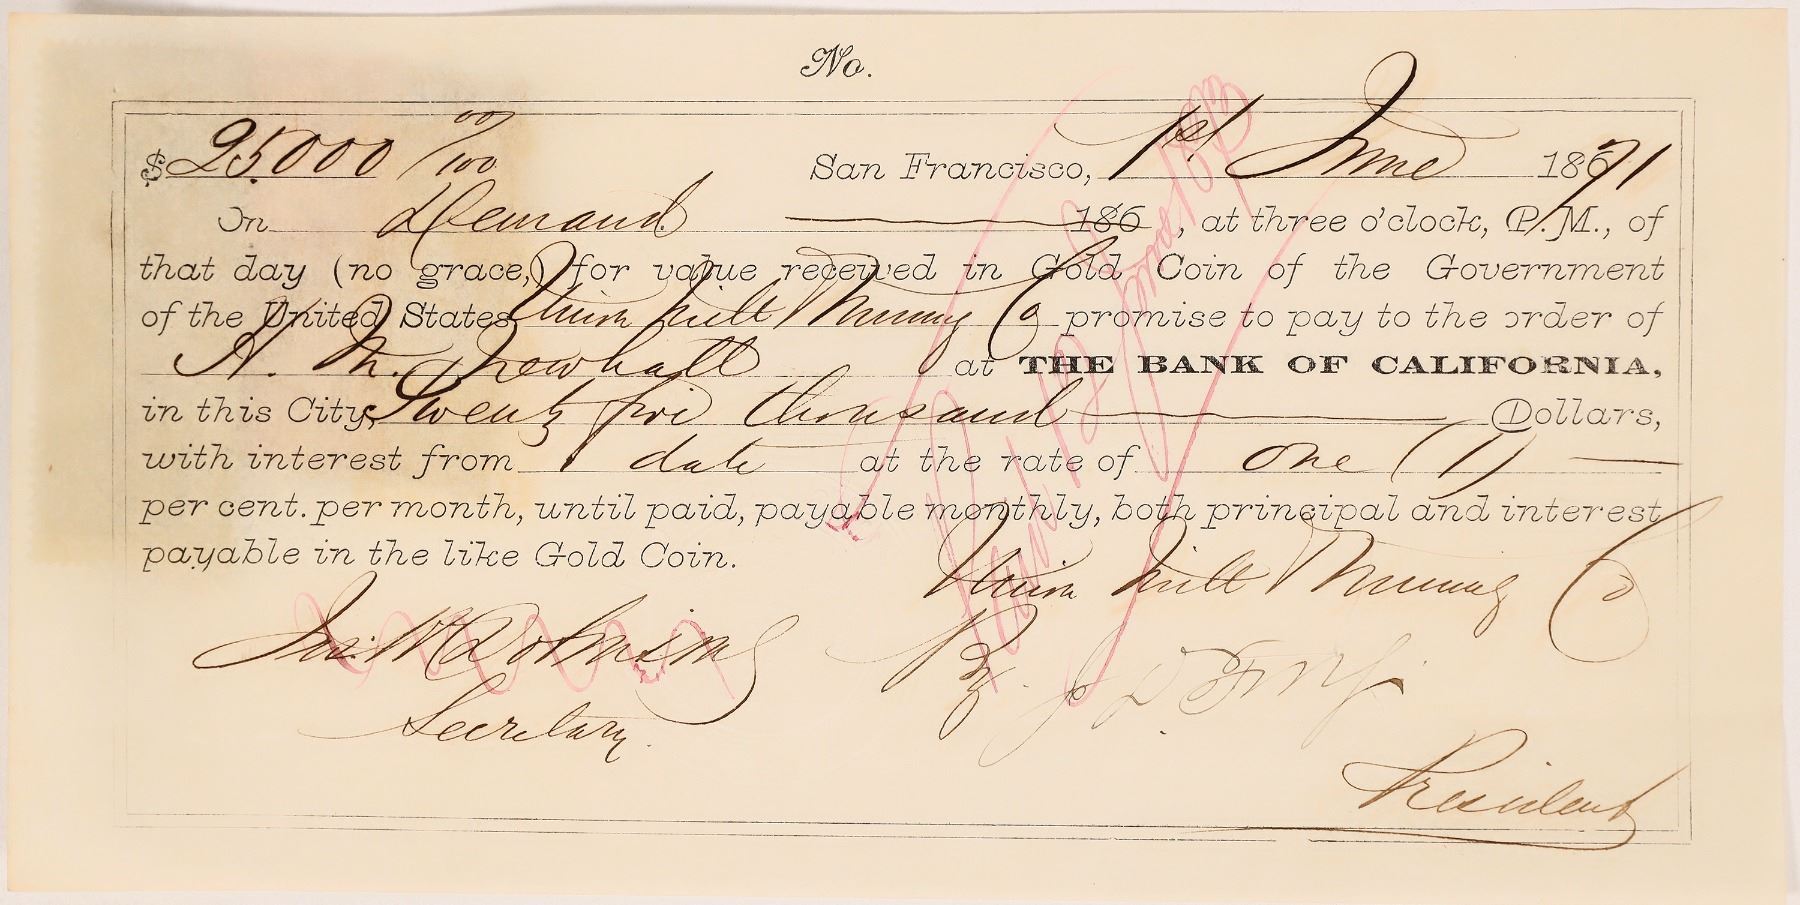 No.
$ 25.000 00/100 San Francisco, 1st June 1871
On Demand 186 , at three o'clock, P.M., of
that day (no grace,) for value received in Gold Coin of the Government
of the United States Union Hill Mining Co promise to pay to the order of
H. M. Newhall at THE BANK OF CALIFORNIA,
in this City, Twenty five thousand Dollars,
with interest from date at the rate of one (1)
per cent. per month, until paid, payable monthly, both principal and interest
payable in the like Gold Coin.
Union Hill Mining Co
By
Secretary.
President
Paid 12 June 1873